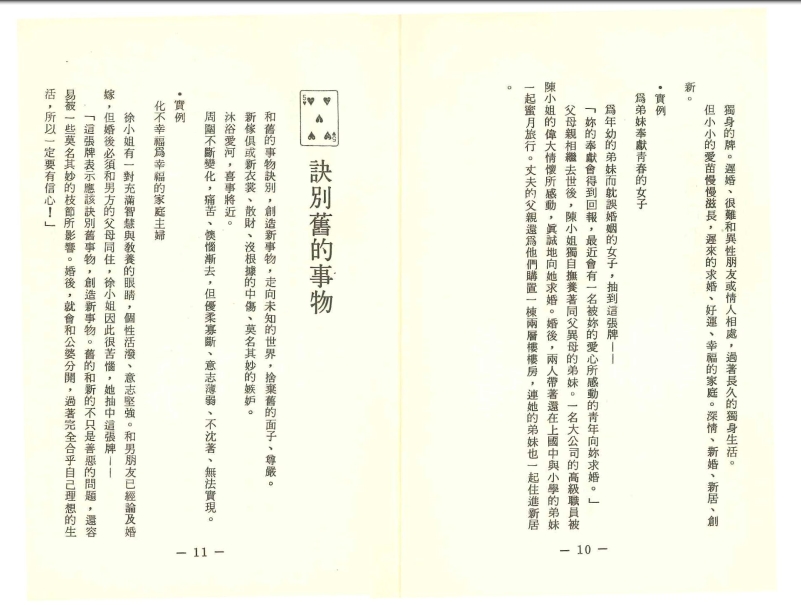 獨身的牌。遲婚、很難和異性朋友或情人相處，過著長久的獨身生活。
但小小的愛苗慢慢滋長，遲來的求婚、好運、幸福的家庭。深情、新婚、新居、創
新。
•實例
為弟妹奉獻青春的女子
為年幼的弟妹而躭誤婚姻的女子，抽到這張牌——
「妳的奉獻會得到回報，最近會有一名被妳的愛心所感動的青年向妳求婚。」
父母親相繼去世後，陳小姐獨自撫養著同父異母的弟妹。一名大公司的高級職員被
陳小姐的偉大情懷所感動，眞誠地向她求婚。婚後，兩人帶著還在上國中與小學的弟妹
一起蜜月旅行。丈夫的父親還爲他們購置一棟兩層樓樓房，連她的弟妹也一起住進新居
。
— 10 —
5
5
訣別舊的事物
和舊的事物訣別，創造新事物，走向未知的世界，捨棄舊的面子、尊嚴。
新傢俱或新衣裳、散財、沒根據的中傷、莫名其妙的嫉妒。
沐浴愛河，喜事將近。
周圍不斷變化，痛苦、懊惱漸去，但優柔寡斷、意志薄弱、不沈著、無法實現。
•實例
化不幸福爲幸福的家庭主婦
徐小姐有一對充滿智慧與教養的眼睛，個性活潑、意志堅強。和男朋友已經論及婚
嫁，但婚後必須和男方的父母同住，徐小姐因此很苦惱，她抽中這張牌——
「這張牌表示應該訣別舊事物，創造新事物。舊的和新的不只是善惡的問題，還容
易被一些莫名其妙的枝節所影響。婚後，就會和公婆分開，過著完全合乎自己理想的生
活，所以一定要有信心！」
— 11 —